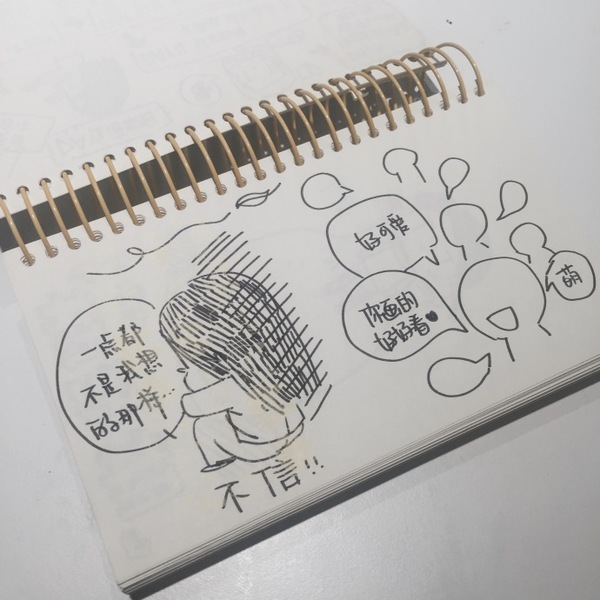 一点都
不是我想
的那样…
不信!!
好可爱
你画的
好好看♥
萌